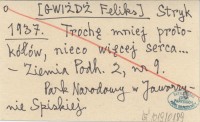 o [GWIŻDŻ Feliks] Stryk
1937. Trochę mniej proto-
kółów, nieco więcej serca...
– Ziemia Podh. 2, nr 9.
Park Narodowy w Jaworzy-
nie Spiskiej